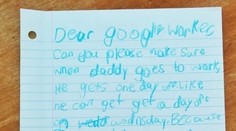 Dear google worker
Can you please make sure
when daddy goes to work,
He gets one day off. Like
He can get get a day off
on wednesday. Because